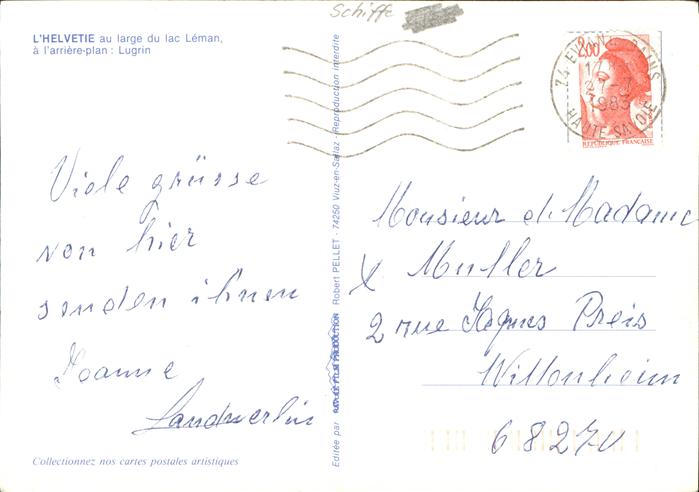 Schiffe
L'HELVETIE au large du lac Léman,
à l'arrière-plan : Lugrin
2,00
74 EVIAN-LES-BAINS
17 H
27-7
1983
HAUTE-SAVOIE
REPUBLIQUE FRANÇAISE
Viele grüsse
von hier
senden ihnen
Joanne
Landwerlin
Collectionnez nos cartes postales artistiques
Editée par PRODUCTION Robert PELLET - 74250 Viuz-en-Sallaz Reproduction interdite
Monsieur et Madame
x Muller
2 rue Jaques Preis
Wittenheim
68270